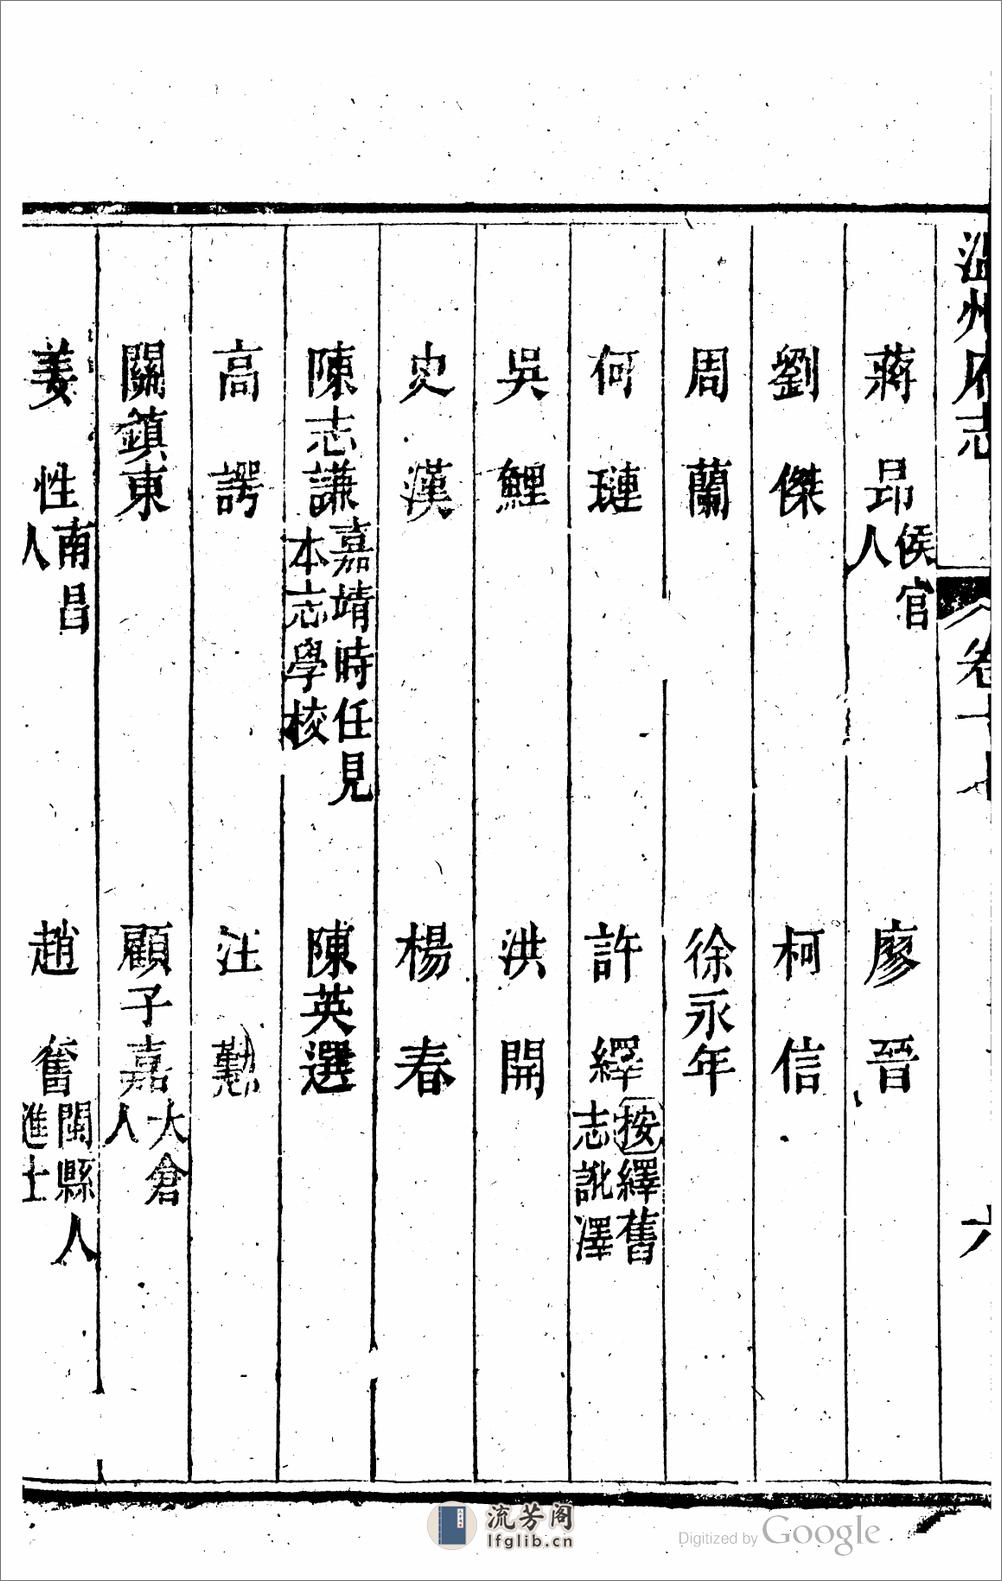 溫州府志 卷十七 六
蔣昂 侯官人 廖晉
劉傑 柯信
周蘭 徐永年
何璉 許繹 按繹舊志訛澤
吳鯉 洪開
史漢 楊春
陳志謙 嘉靖時任見本志學校 陳英選
高諤 汪懃
關鎮東 顧子嘉 大倉人
姜性 南昌人 趙奮 閩縣人進士
流芳阁
lfglib.cn
Digitized by Google